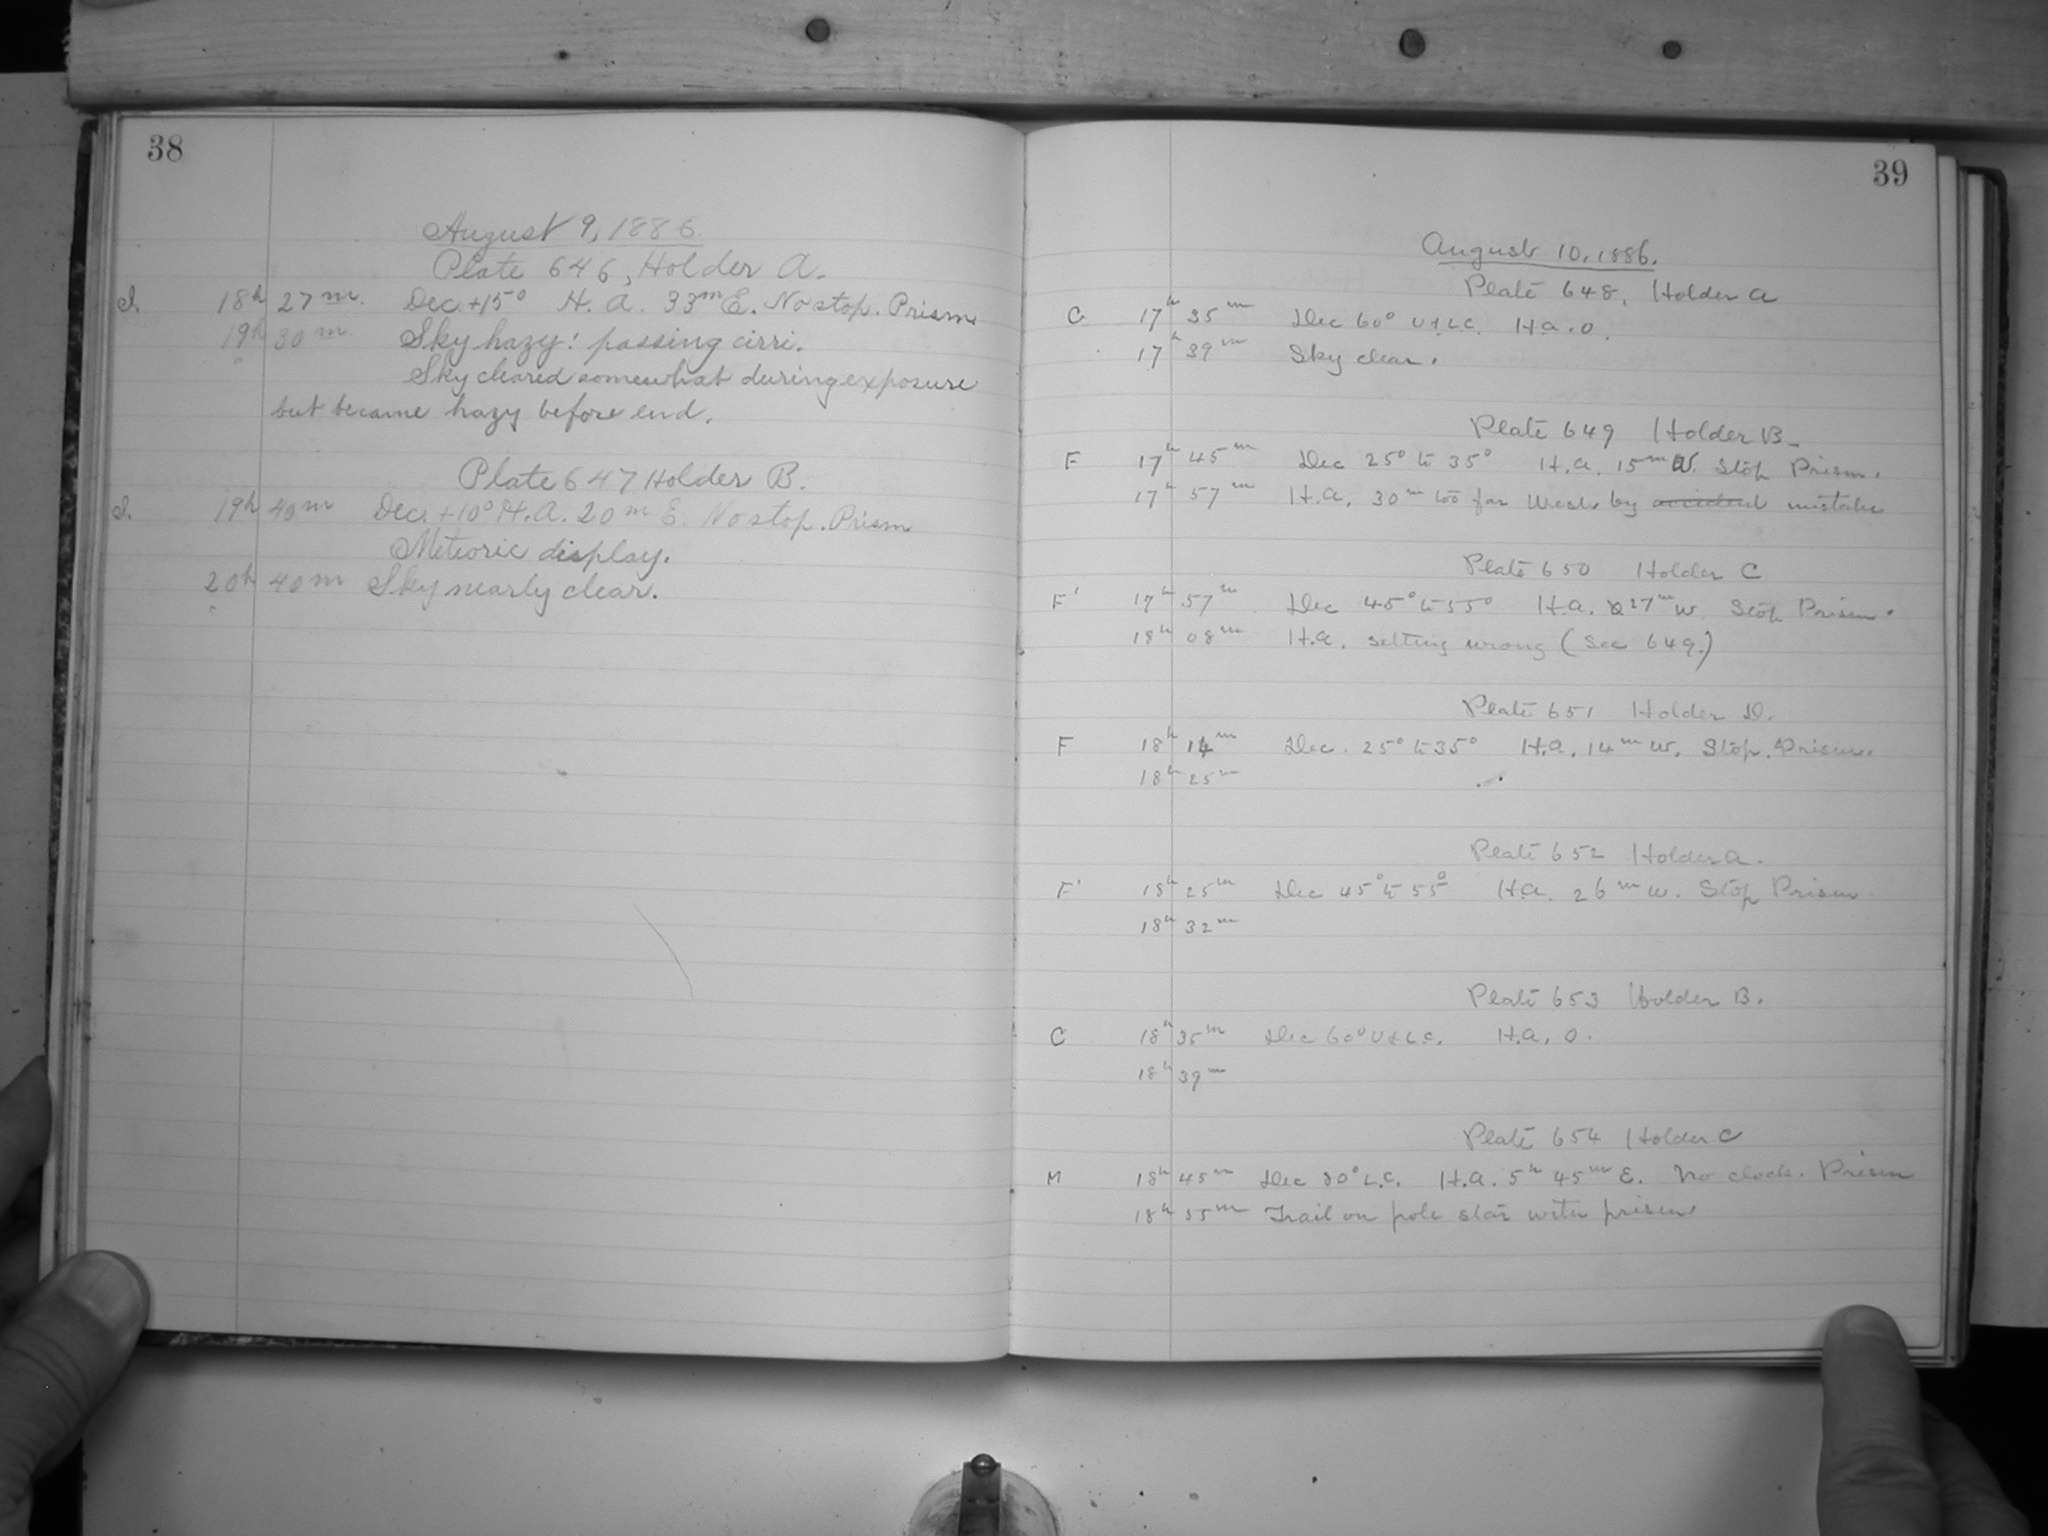 38
August 9, 1886
Plate 646, Holder A.
I. 18h 27m. Dec. +15° H. A. 33m E. No stop. Prism
19h 30m. Sky hazy: passing cirri.
Sky cleared somewhat during exposure
but became hazy before end.
Plate 647 Holder B.
I. 19h 40m Dec. +10° H. A. 20m E. No stop. Prism
Meteoric display.
20h 40m Sky nearly clear.
39
August 10, 1886.
Plate 648, Holder A
C 17h 35m Dec 60° U & L.C. H.A. 0.
17h 39m Sky clear.
Plate 649 Holder B
F 17h 45m Dec 25° to 35° H.A. 15m W. Stop Prism.
17h 57m H.A. 30m too far West by accident mistake
Plate 650 Holder C
F' 17h 57m Dec 45° to 55° H.A. 27m W. Stop Prism.
18h 08m H.A. setting wrong (See 649.)
Plate 651 Holder D.
F 18h 14m Dec. 25° to 35° H.A. 14m W. Stop. Prism.
18h 25m
Plate 652 Holder A.
F' 18h 25m Dec 45° to 55° H.A. 26m W. Stop Prism
18h 32m
Plate 653 Holder B.
C 18h 35m Dec 60° U & L.C. H.A. 0.
18h 39m
Plate 654 Holder C
M 18h 45m Dec L.C. H.A. 5h 45m E. No clock. Prism
18h 55m Trail on pole star with prism.